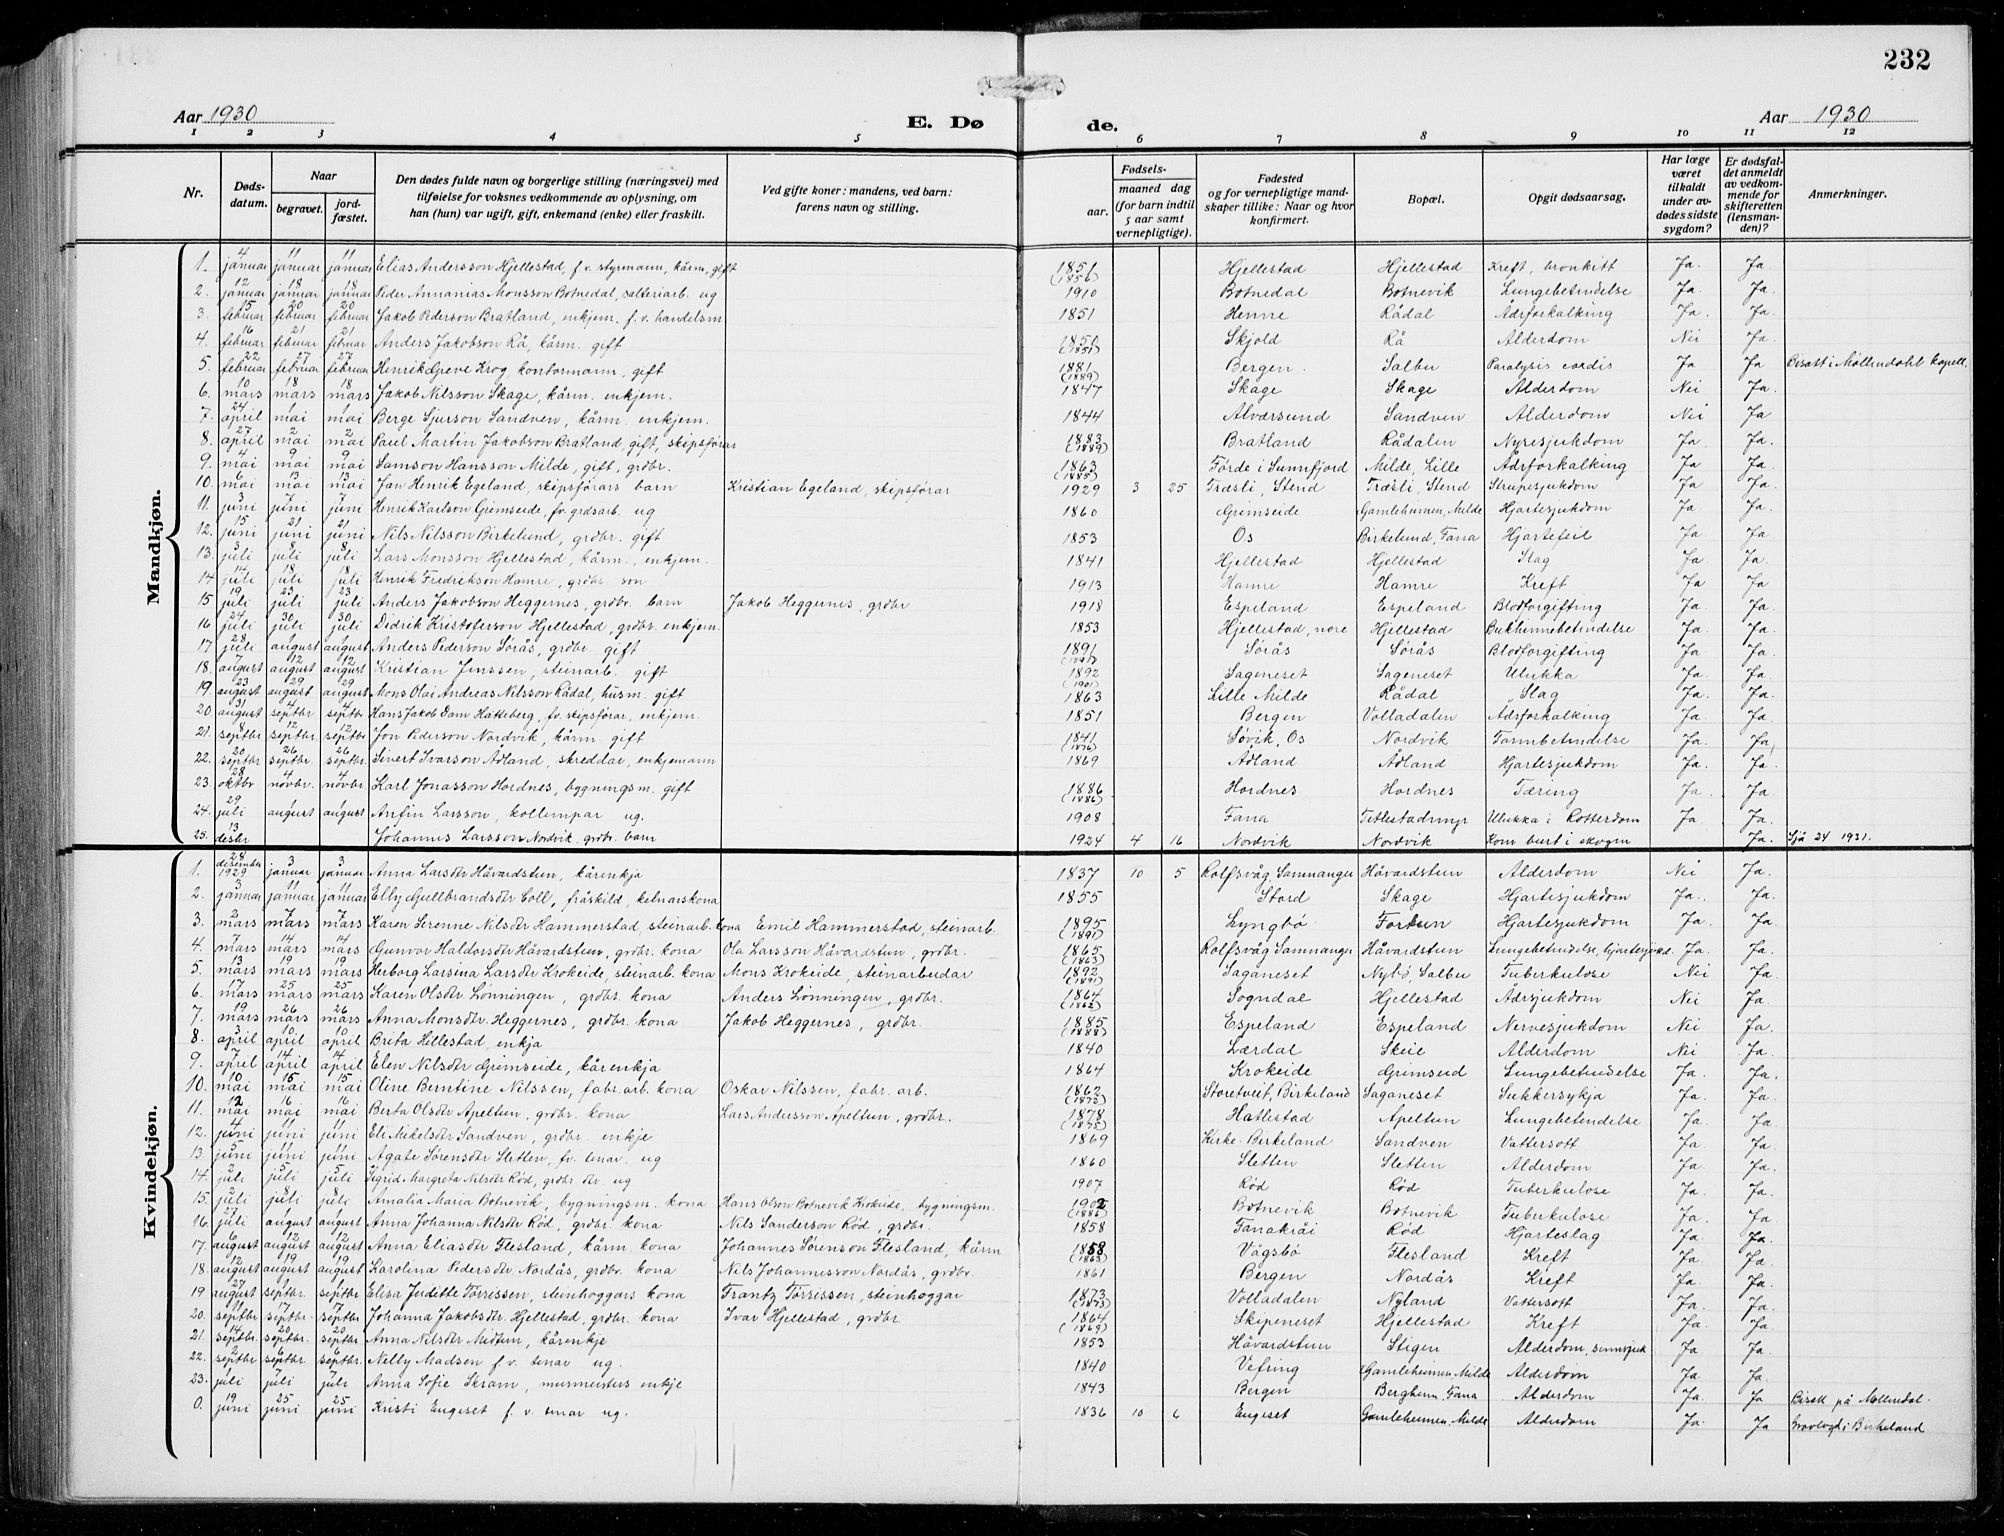 232
Aar 1930 E. Døde. Aar 1930
1 2 3 4 5 6 7 8 9 10 11 12
Nr. Dødsdatum. Naar begravet. jordfæstet. Den dødes fulde navn og borgerlige stilling (næringsvei) med tilføielse for voksnes vedkommende av oplysning, om han (hun) var ugift, gift, enkemand (enke) eller fraskilt. Ved gifte koner: mandens, ved barn: farens navn og stilling. Fødsels- aar. maaned dag (for barn indtil 5 aar samt vernepligtige). Fødested og for vernepligtige mandskaper tillike: Naar og hvor konfirmert. Bopæl. Opgit dødsaarsag. Har læge været tilkaldt under avdødes sidste sygdom? Er dødsfaldet anmeldt av vedkommende for skifteretten (lensmanden)? Anmerkninger.
Mandkjøn.
1. 4 januar 11 januar 11 januar Elias Andersson Hjellestad, f.v. styrmann, kårm, gift 1851 (1856) Hjellestad Hjellestad Kreft, bronkitt Ja. Ja
2. 12 januar 18 januar 18 januar Peder Annanias Monsson Botnedal, salteriarb. ug 1910 Botnedal Botnevik Lungebetndelse Ja. Ja.
3. 15 februar 20 februar 20 februar Jakob Pederson Bratland, enkjem. f.v. handelsm 1851 Henne Rådal Ådrforkalking Ja. Ja.
4. 16 februar 21 februar 21 februar Anders Jakobson Rå, kårm. gift 1850 (1851) Skjold Rå Alderdom Nei Ja.
5. 22 februar 27 februar 27 februar Henrik Greve Krog, kontormann, gift 1881 (1889) Bergen. Salbu Paralysis cordis Ja Ja Bisatt i Møllendahl kapell.
6. 10 mars 18 mars 18 mars Jakob Nilsson Skage, kårm. enkjem. 1847 Skage Skage Alderdom Nei Ja.
7. 24 april 1 mai 1 mai Berge Sjurson Sandven, kårm. enkjem. 1844 Alversund Sandven Alderdom Nei Ja
8. 27 april 2 mai 2 mai Paul Martin Jakobson Bratland, gift, skipsførar 1883 (1889) Bratland Rådalen Nyresjukdom Ja. Ja.
9. 4 mai 9 mai 9 mai Samson Hansson Milde, gift, grdbr. 1863 (1885) Førde i Sunnfjord Milde, Lille Ådrforkalking Ja Ja.
10. 6 mai 13 mai 13 mai Jan Henrik Egeland, skipsførars barn Kristian Egeland, skipsførar 1929 3 25 Træsli, Stend Træsli, Stend Strupesjukdom Ja. Ja.
11. 3 juni 7 juni 7 juni Henrik Karlson Grimseide, fv. grdsarb. ug 1860 Grimseide Gamleheimen, Milde Hjartesjukdom Ja Ja.
12. 15 juni 21 juni 21 juni Nils Nilsson Birkelund, grdbr. gift 1853 Os Birkelund, Fana Hjartefeil Ja Ja
13. 3 juli 8 juli 8 juli Lars Monsson Hjellestad, kårm., enkjem. 1841 Hjellestad Hjellestad Slag Ja Ja.
14 14 juli 18 juli 18 juli Henrik Fredrikson Hamre, grdbr. son 1913 Hamre Hamre Kreft Ja Ja.
15 19 juli 23 juli 23 juli Anders Jakobson Heggernes, grdbr. barn Jakob Heggernes, grdbr 1918 Espeland Espeland Blodforgifting Ja. Ja.
16 24 juli 30 juli 30 juli Didrik Kristoferson Hjellestad, grdbr. enkjem. 1853 Hjellestad, nore Hjellestad Bukhinnebetndelse Ja. Ja.
17 28 juli 1 august 1 august Anders Pederson Sørås, grdbr. gift 1891 Sørås Sørås Blodforgifting Ja. Ja.
18. 7 august 12 august 12 august Kristian Jenssen, steinarb. gift 1892 (1901) Sageneset Sageneset Ulukka Ja. Ja.
19. 23 august 29 august 29 august Mons Olai Andreas Nilsson Rådal, husm. gift 1863 Lille Milde Rådal Slag Ja. Ja.
20 31 august 4 septbr 4 septbr Hans Jakob Dam Hatteberg, fv. skipsførar, enkjem. 1851 Bergen Volladalen Ådrforkalking Ja. Ja.
21. 8 septbr 12 septbr. 12 septbr Jon Pederson Nordvik, kårm. gift 1841 (1876) Søvik, Os Nordvik Tarmbetndelse Ja. Ja
22. 20 septbr 26 septbr. 26 septbr. Sivert Ivarson Ådland, skreddar, enkjemann 1869 Ådland Ådland Hjartesjukdom Ja. Ja.
23. 28 oktbr 4 novbr. 4 novbr Karl Jonasson Hordnes, bygningsm. gift 1886 (1886) Hordnes Hordnes Tæring Ja. Ja.
24. 29 juli 1 august 1 august Anfin Larsson, kollempar ug. 1908 Fana Titlestadmyr Ulukka i Rotterdam Ja. Ja.
25. 13 desbr Johannes Larsson Nordvik, grdbr. barn 1924 4 16 Nordvik Nordvik Kom burt i skogen Ja. Sjå 24 1931.
Kvindekjøn.
1. 28 desember 1929 3 januar 3 januar Anna Larsdtr Håvardstun, kårenkja 1837 10 5 Rolfsvåg, Samnanger Håvardstun Alderdom Nei Ja.
2. 3 januar 11 januar 11 januar Elly Gullbrandsdtr Coll, fråskild, kelnarskona 1855 Stord Skage Hjartesjukdom Ja. Ja.
3. 2 mars 7 mars 7 mars Karen Serenne Nilsdtr Hammerstad, steinarb. kona Emil Hammerstad, steinarb. 1895 (1891) Lyngbø Fortun Hjartesjukdom Ja. Ja.
4. 7 mars 14 mars 14 mars Gunvor Haldorsdtr Håvardstun, grdbr. kona Ola Larsson Håvardstun, grdbr. 1865 (1863) Rolfsvåg Samnanger Håvardstun Lungebetndelse, hjartesjukd. Ja. Ja.
5. 13 mars 19 mars 19 mars Herborg Larsina Larsdtr Krokeide, steinarb. kona Mons Krokeide, steinarbeidar 1892 (1891) Saganeset Nybø, Salbu Tuberkulose Nei Ja
6. 17 mars 25 mars 25 mars Karen Olsdtr Lønningen, grdbr. kona Anders Lønningen, grdbr. 1864 (1862) Sogndal Hjellestad Ådrsjukdom Nei Ja.
7. 19 mars 26 mars 26 mars Anna Monsdtr. Heggernes, grdbr. kona Jakob Heggernes, grdbr. 1885 (1888) Espeland Espeland Nervesjukdom Nei Ja.
8. 3 april 10 april 10 april Brita Hillestad, enkja 1840 Lærdal Skeie Alderdom Nei Ja.
9. 7 april 14 april 14 april Elen Nilsdtr Grimseide, kårenkja 1864 Krokeide Grimseid Lungebetndelse Ja. Ja.
10. 10 mai 15 mai 15 mai Oline Berntine Nilssen, fabr.arb. kona Oskar Nilssen, fabr. arb. 1862 (1872) Storetveit, Birkeland Saganeset Sukkersykja Ja. Ja.
11. 12 mai 16 mai 16 mai Berta Olsdtr Apeltun, grdbr. kona Lars Andersson Apeltun, grdbr. 1878 (1875) Hatlestad Apeltun Lungebetndelse Ja. Ja.
12. 4 juni 11 juni 11 juni Eli Mikelsdtr Sandven, grdbr. enkje 1869 Kirke-Birkeland Sandven Vattersott Ja Ja.
13. 5 juni 11 juni 11 juni Agate Sørensdtr Sletten, fv. tenar. ug 1860 Sletten Sletten Alderdom Ja. Ja.
14. 2 juli 5 juli 5 juli Sigrid Margreta Nilsdtr Rød, grdbr. dtr. ug 1907 Rød Rød Tuberkulose Ja. Ja.
15. 2 juli 8 juli 8 juli Amalia Maria Botnevik, bygningsm. kona Hans Olson Botnevik Krokeide, bygningsm. 1902 (1886) Botnevik Botnevik Tuberkulose Ja. Ja.
16. 27 juli 1 august 1 august Anna Johanna Nilsdtr Rød, grdbr. kona Nils Sanderson Rød, grdbr. 1858 Fanakråi Rød Hjarteslag Ja. Ja.
17. 6 august 12 august 12 august Anna Eliasdtr Flesland, kårm. kona Johannes Sørenson Flesland, kårm 1858 (1863) Vågsbø Flesland Kreft Ja. Ja.
18. 12 august 19 august 19 august Karolina Pedersdtr Nordås, grdbr. kona Nils Johannesson Nordås, grdbr. 1861 Bergen Nordås Kreft Ja. Ja.
19 27 august 1 septbr. 1 septbr Elisa Juditte Tørrissen, steinhoggars kona Frantz Tørrissen, steinhoggar 1873 (1873) Volladalen Nyland Vattersott Ja. Ja.
20. 11 septbr 17 septbr. 17 septbr Johanna Jakobsdtr Hjellestad, grdbr. kona Ivar Hjellestad, grdbr. 1864 (1869) Skipeneset Hjellestad Kreft Ja. Ja.
21. 14 septbr. 20 septbr. 20 septbr. Anna Nilsdtr Midtun, kårenkje 1853 Håvardstun Stigen Alderdom, sinnsjuk Ja Ja.
22. 2 septbr 6 septbr. 6 septbr. Nelly Madsen f.v. tenar ug. 1840 Vefring Gamleheimen, Milde Alderdom Ja. Ja.
23. 1 juli 7 juli 7 juli Anna Sofie Skram, murmeisters enkje 1843 Bergen Bergheim, Fana Alderdom Ja. Ja Bisatt på Møllendal.
0. 19 juni 25 juni 25 juni Kristi Engeset f.v. tenar ug. 1836 10 6 Engeset Gamleheimen, Milde Alderdom Ja. Ja Gravlagd i Birkeland